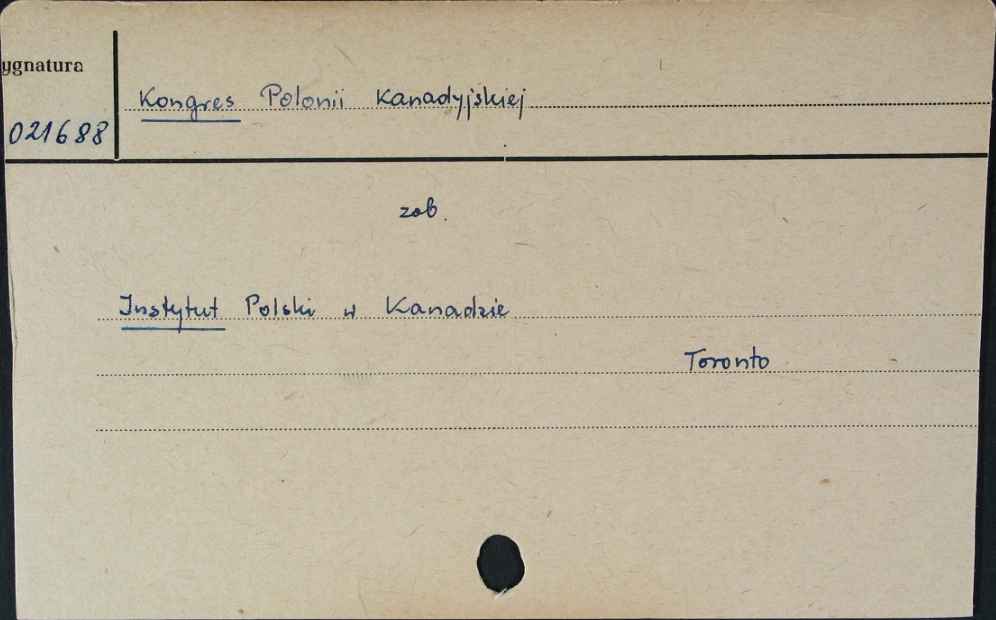 ygnatura
Kongres Polonii Kanadyjskiej
021688
zob.
Instytut Polski w Kanadzie
Toronto